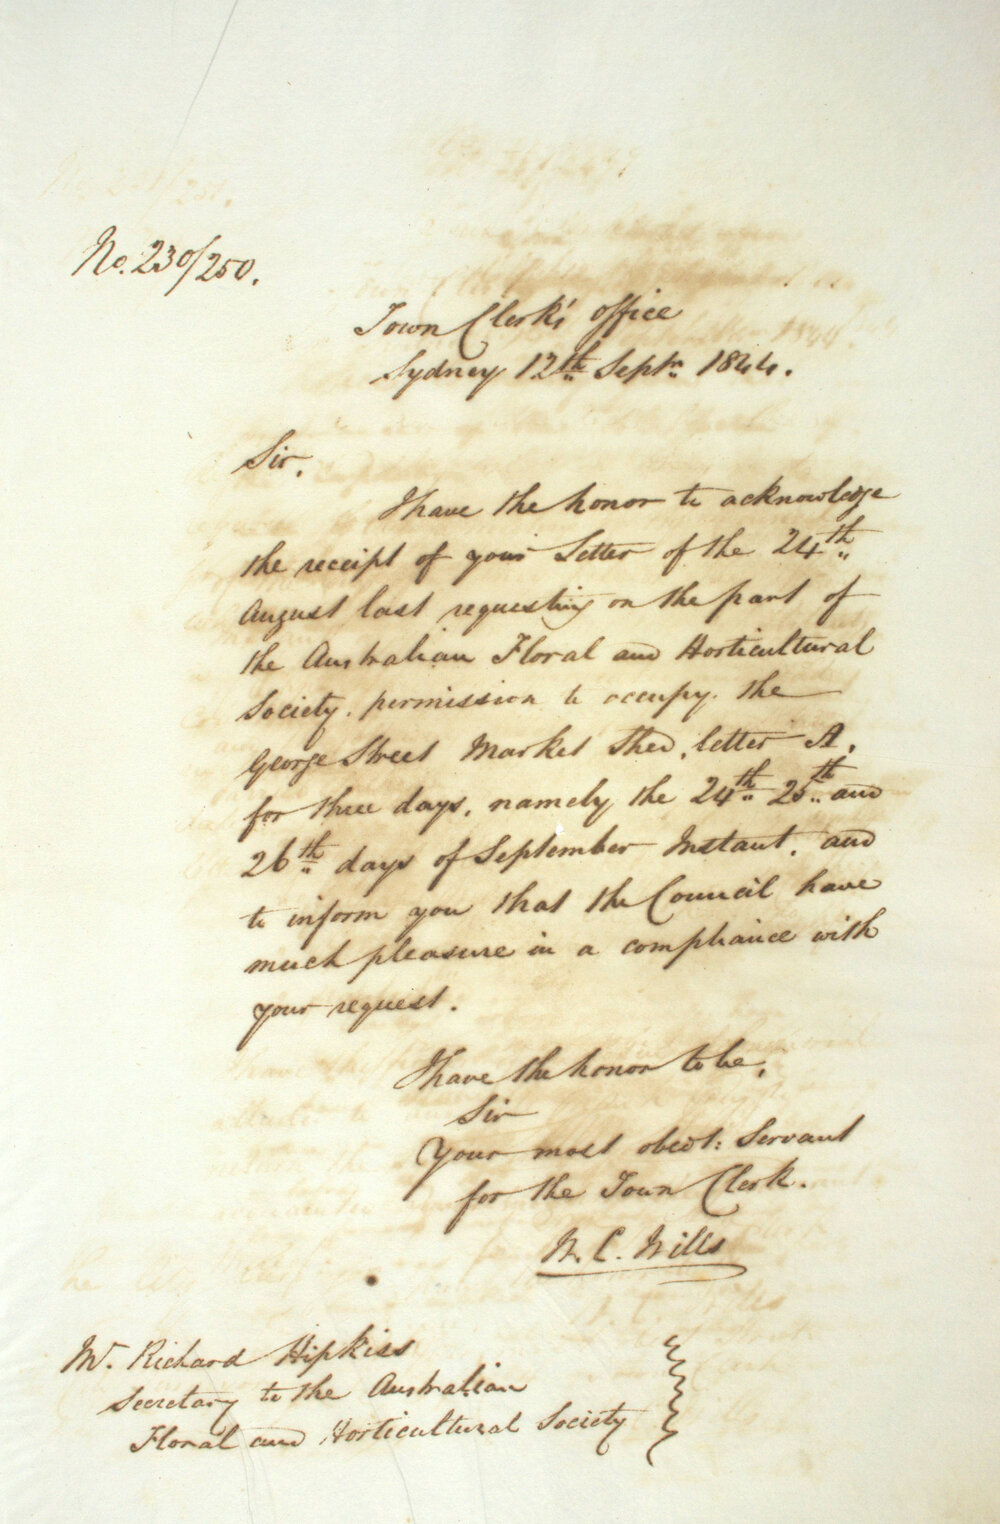 No. 230/250.
Town Clerk's office
Sydney 12th Septr. 1844.
Sir,
I have the honor to acknowledge
the receipt of your Letter of the 24th
August last requesting on the part of
the Australian Floral and Horticultural
Society. permission to occupy. the
George Street Market Shed, letter A,
for three days, namely the 24th 25th and
26th days of September Instant, and
to inform you that the Council have
much pleasure in a compliance with
your request.
I have the honor to be,
Sir
Your most obedt: Servant
for the Town Clerk.
W. C. Wills
Mr. Richard Hipkiss
Secretary to the Australian
Floral and Horticultural Society